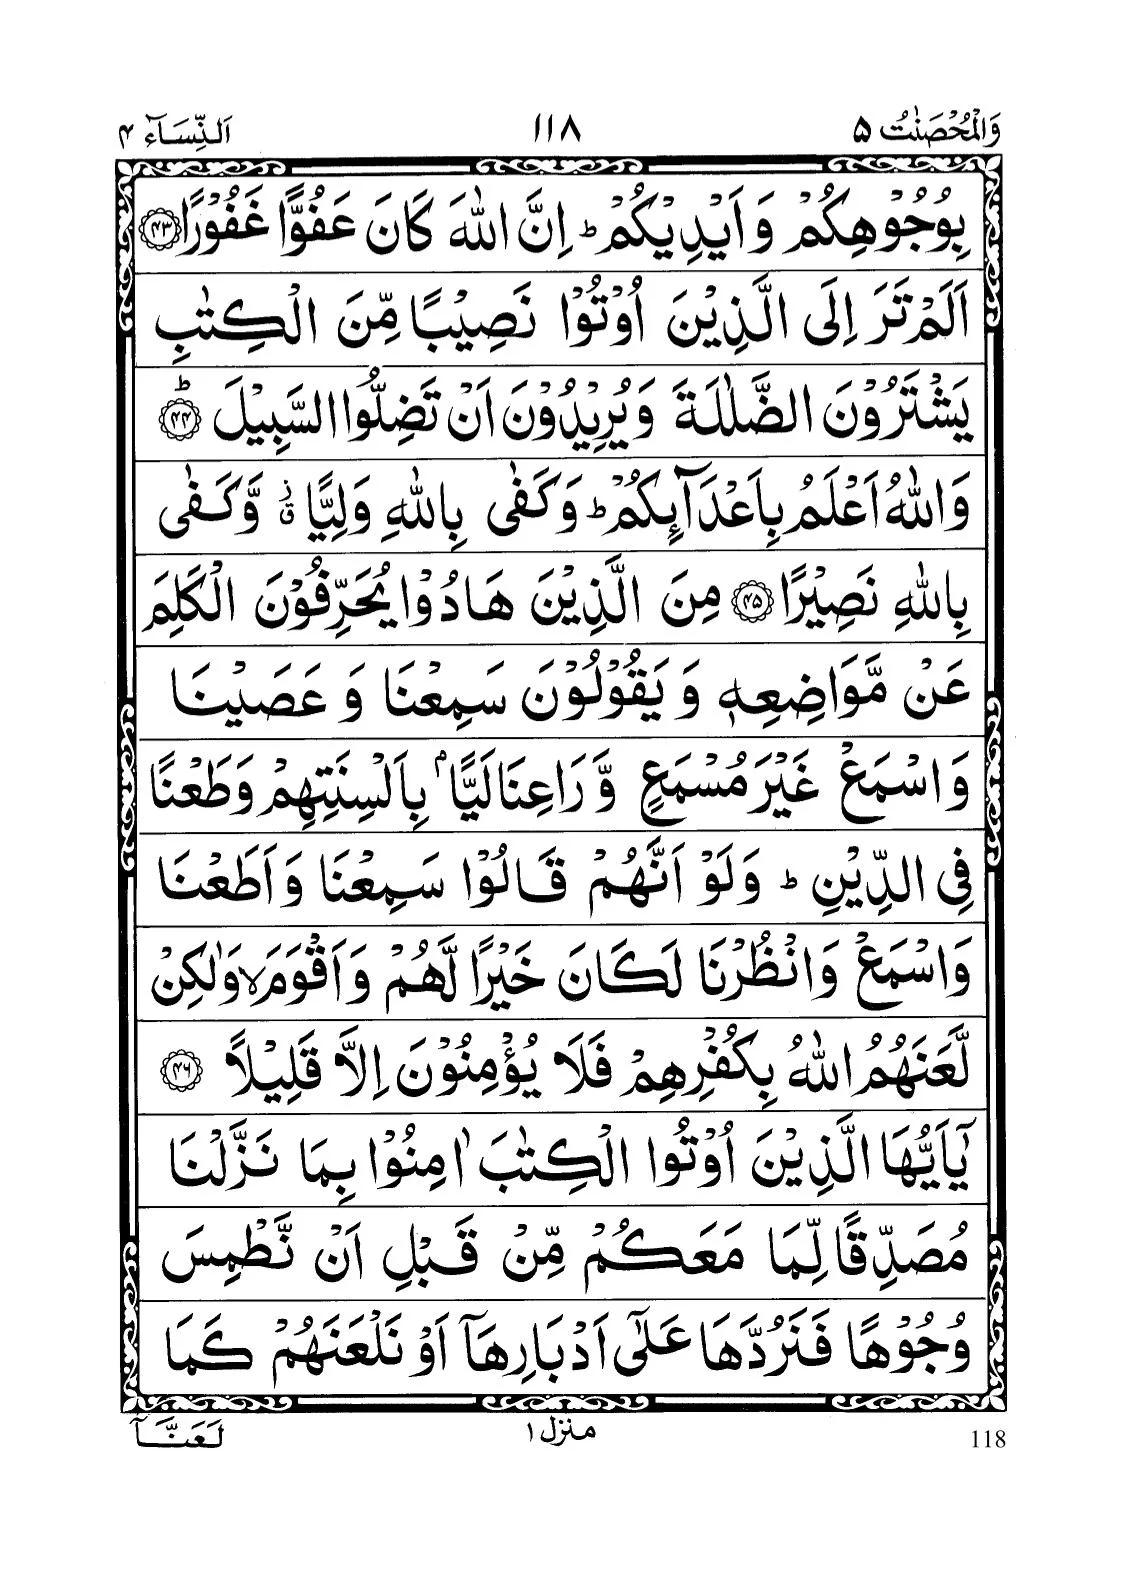 وَالْمُحْصَنٰتُ ۵
۱۱۸
اَلنِّسَآء ۴
بِوُجُوْهِكُمْ وَ اَيْدِيْكُمْ ؕ اِنَّ اللّٰهَ كَانَ عَفُوًّا غَفُوْرًا ﴿۴۳﴾
اَلَمْ تَرَ اِلَى الَّذِيْنَ اُوْتُوْا نَصِيْبًا مِّنَ الْكِتٰبِ
يَشْتَرُوْنَ الضَّلٰلَةَ وَيُرِيْدُوْنَ اَنْ تَضِلُّوا السَّبِيْلَ ﴿۴۴﴾ؕ
وَاللّٰهُ اَعْلَمُ بِاَعْدَآئِكُمْ ؕ وَكَفٰى بِاللّٰهِ وَلِيًّا ۫ۙ وَّكَفٰى
بِاللّٰهِ نَصِيْرًا ﴿۴۵﴾ مِنَ الَّذِيْنَ هَادُوْا يُحَرِّفُوْنَ الْكَلِمَ
عَنْ مَّوَاضِعِهٖ وَ يَقُوْلُوْنَ سَمِعْنَا وَ عَصَيْنَا
وَاسْمَعْ غَيْرَ مُسْمَعٍ وَّرَاعِنَا لَيًّۢا بِاَلْسِنَتِهِمْ وَطَعْنًا
فِى الدِّيْنِ ؕ وَلَوْ اَنَّهُمْ قَالُوْا سَمِعْنَا وَاَطَعْنَا
وَاسْمَعْ وَانْظُرْنَا لَكَانَ خَيْرًا لَّهُمْ وَاَقْوَمَ ۙ وَلٰكِنْ
لَّعَنَهُمُ اللّٰهُ بِكُفْرِهِمْ فَلَا يُؤْمِنُوْنَ اِلَّا قَلِيْلًا ﴿۴۶﴾
يٰۤاَيُّهَا الَّذِيْنَ اُوْتُوا الْكِتٰبَ اٰمِنُوْا بِمَا نَزَّلْنَا
مُصَدِّقًا لِّمَا مَعَكُمْ مِّنْ قَبْلِ اَنْ نَّطْمِسَ
وُجُوْهًا فَنَرُدَّهَا عَلٰٓى اَدْبَارِهَاۤ اَوْ نَلْعَنَهُمْ كَمَا
لَعَنَّاۤ
منزل ۱
118